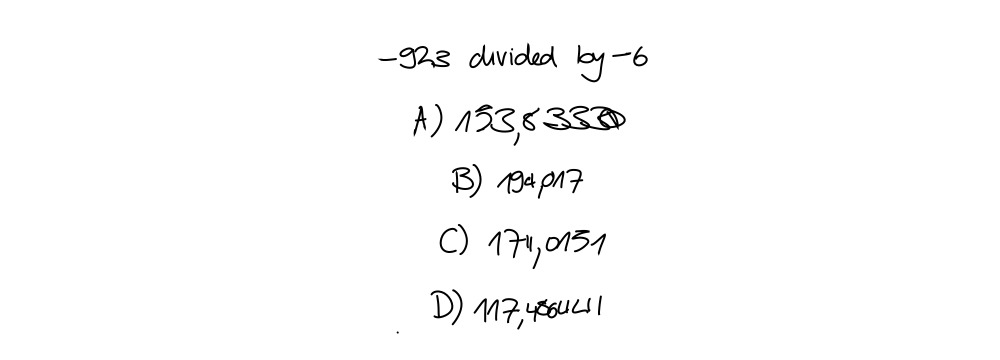 -923 divided by -6
A) 153,8333
B) 194,017
C) 174,0151
D) 117,4864411